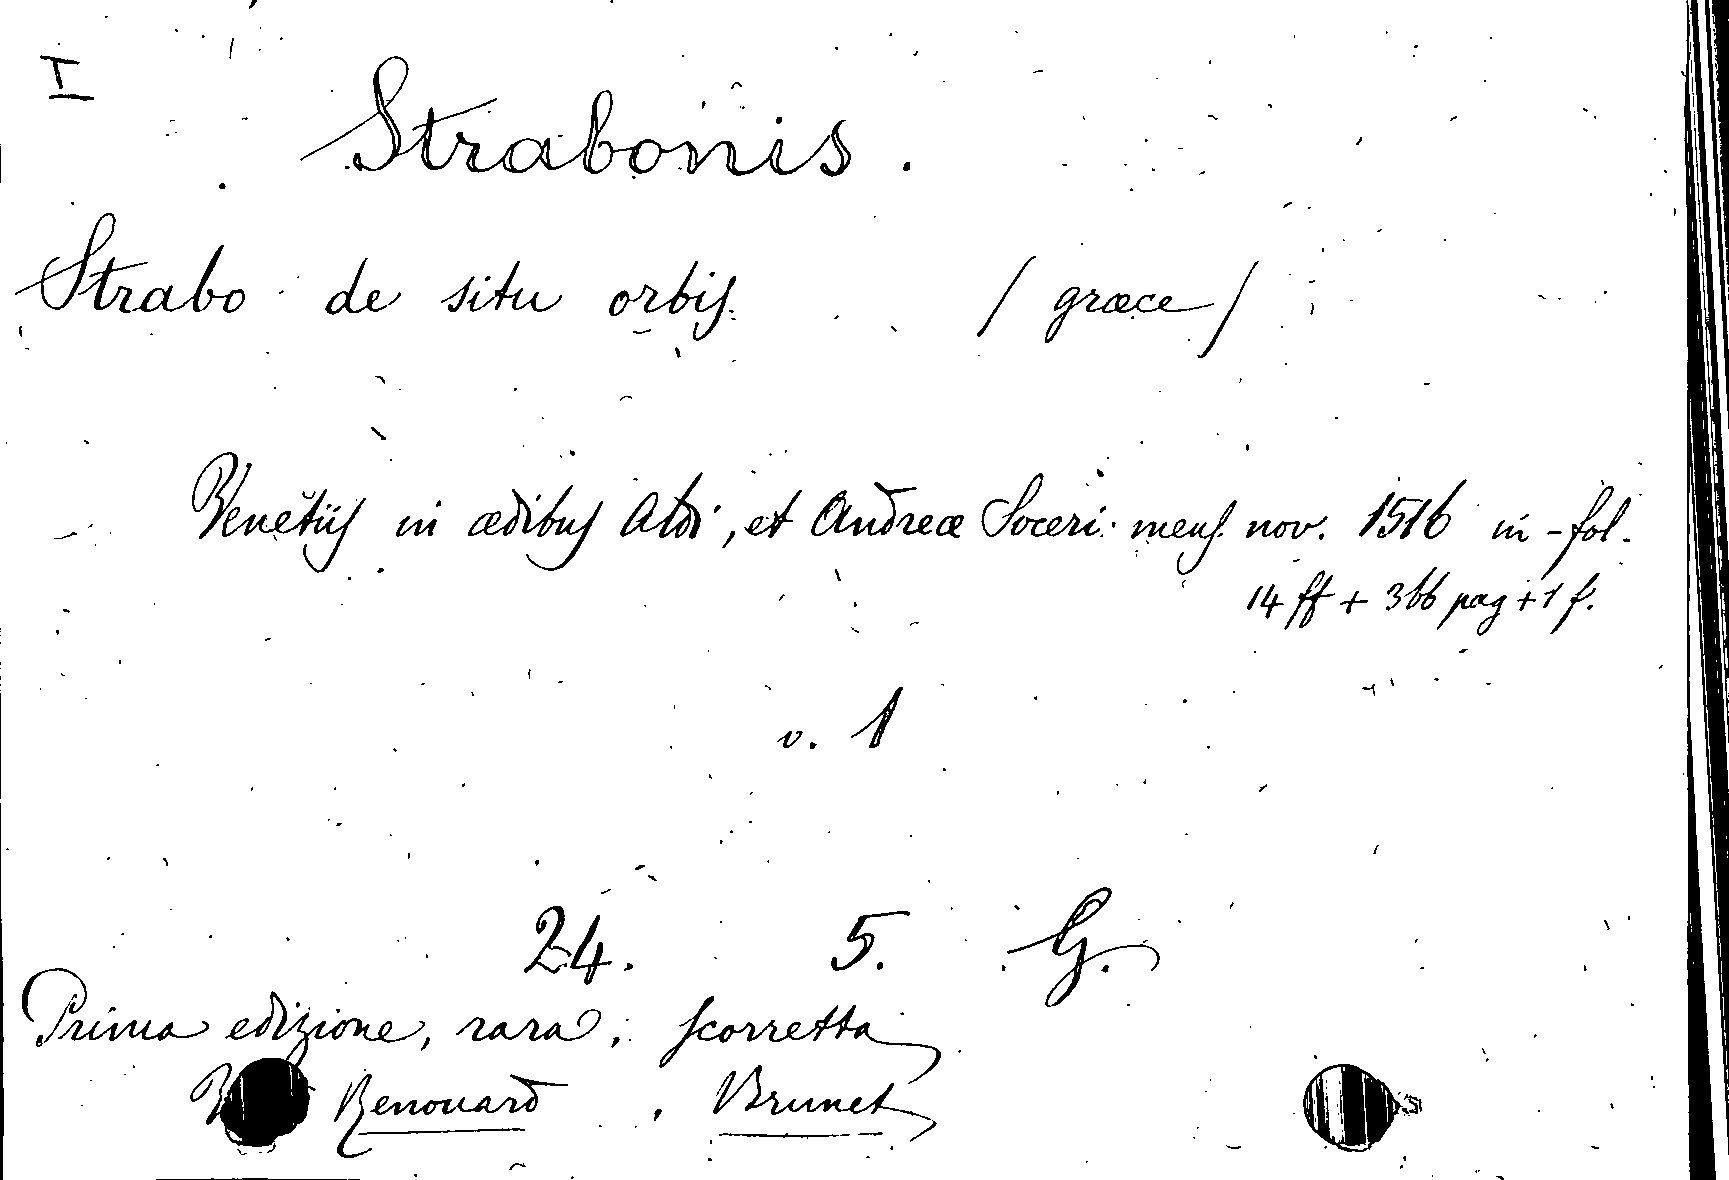 I
Strabonis.
Strabo de situ orbis. / græce /
Venetiis in ædibus Aldi, et Andreæ Soceri. mens. nov. 1516 in-fol.
14 ff + 366 pag + 1 f.
v. 1
24. 5. G.
Prima edizione, rara, scorretta
Renouard. Brunet